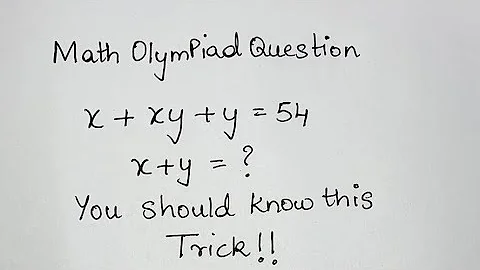 Math Olympiad Question
x + xy + y = 54
x+y = ?
You should know this
Trick!!